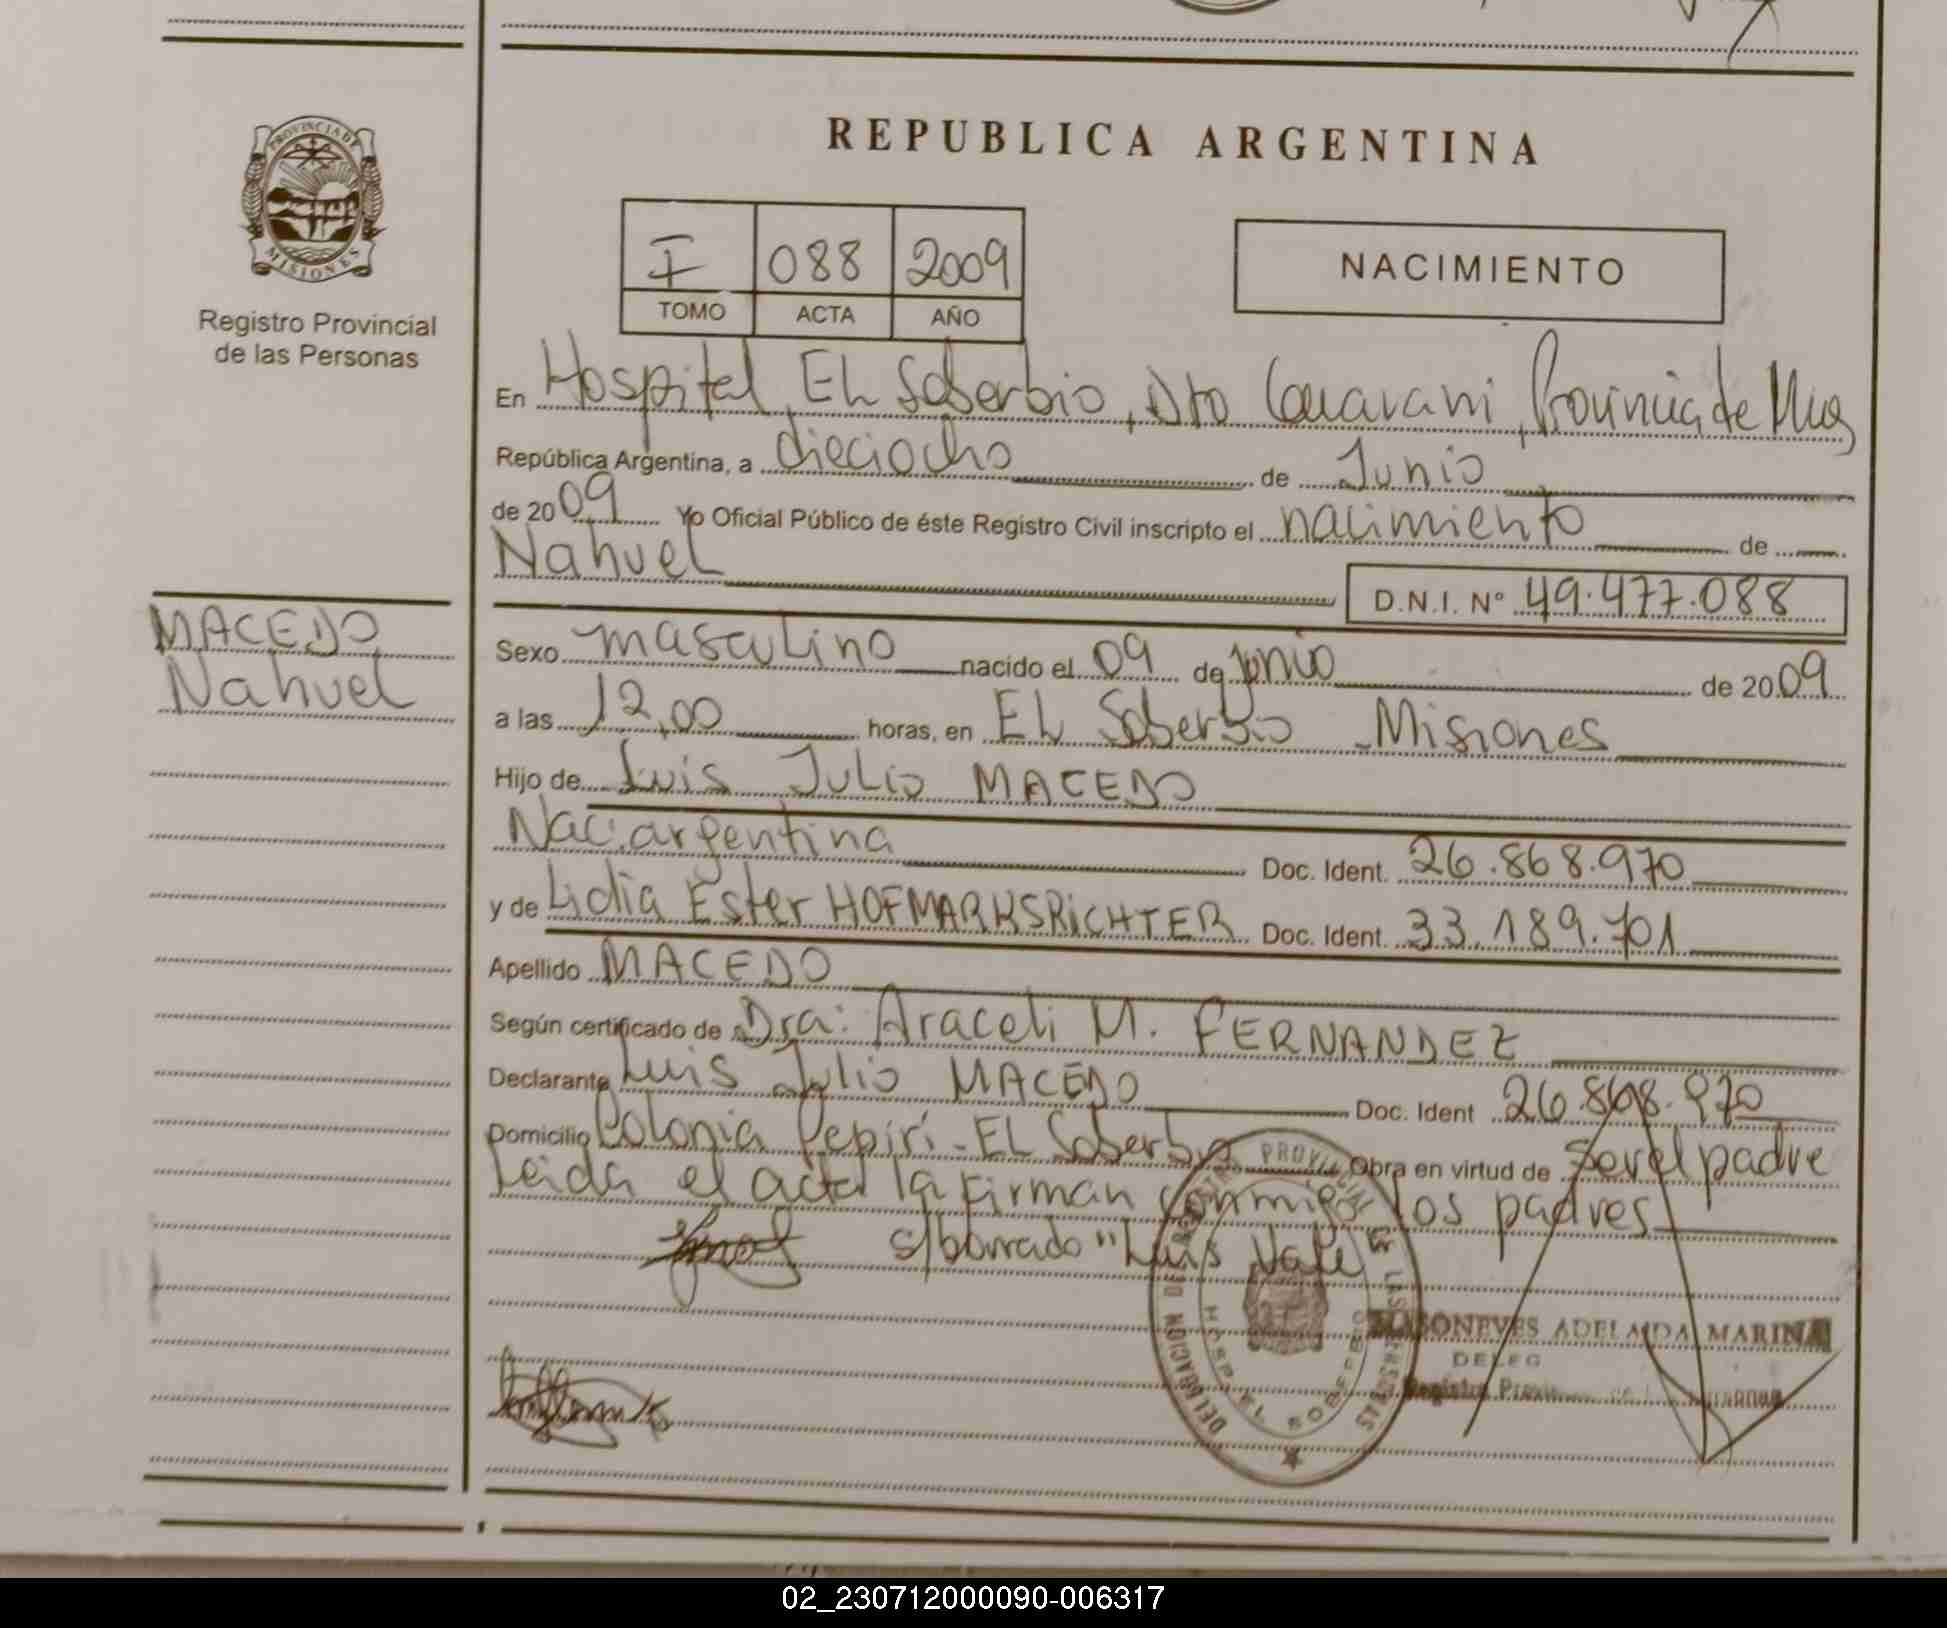 PROVINCIA DE
MISIONES
Registro Provincial
de las Personas
MACEDO
Nahuel
REPUBLICA ARGENTINA
I 088 2009
TOMO ACTA AÑO
NACIMIENTO
En Hospital EL Soberbio, Dto Guarani, Provincia de Mnes
República Argentina, a dieciocho de Junio
de 2009 Yo Oficial Público de éste Registro Civil inscripto el nacimiento de
Nahuel D.N.I. Nº 49.477.088
Sexo masculino nacido el 09 de Junio de 2009
a las 12,00 horas, en EL Soberbio - Misiones
Hijo de Luis Julio MACEDO
Nac. argentina Doc. Ident. 26.868.970
y de Lidia Ester HOFMARKSRICHTER Doc. Ident. 33.189.701
Apellido MACEDO
Según certificado de Dra: Araceli M. FERNANDEZ
Declarante Luis Julio MACEDO Doc. Ident 26.868.970
Domicilio Colonia Pepirí - EL Soberbio Obra en virtud de ser el padre
Leida el acta la firman conmigo los padres
s/borrado "Luis Vale
REGISTRO PROVINCIAL DE LAS PERSONAS
DELEGACION
HOSP. EL SOBERBIO
ADELAIDA MARINA
DELEG
Registro
02_230712000090-006317